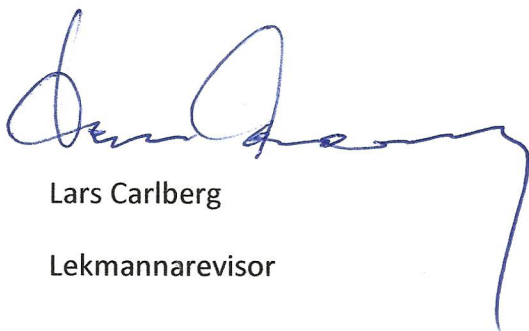 Lars Carlberg
Lekmannarevisor